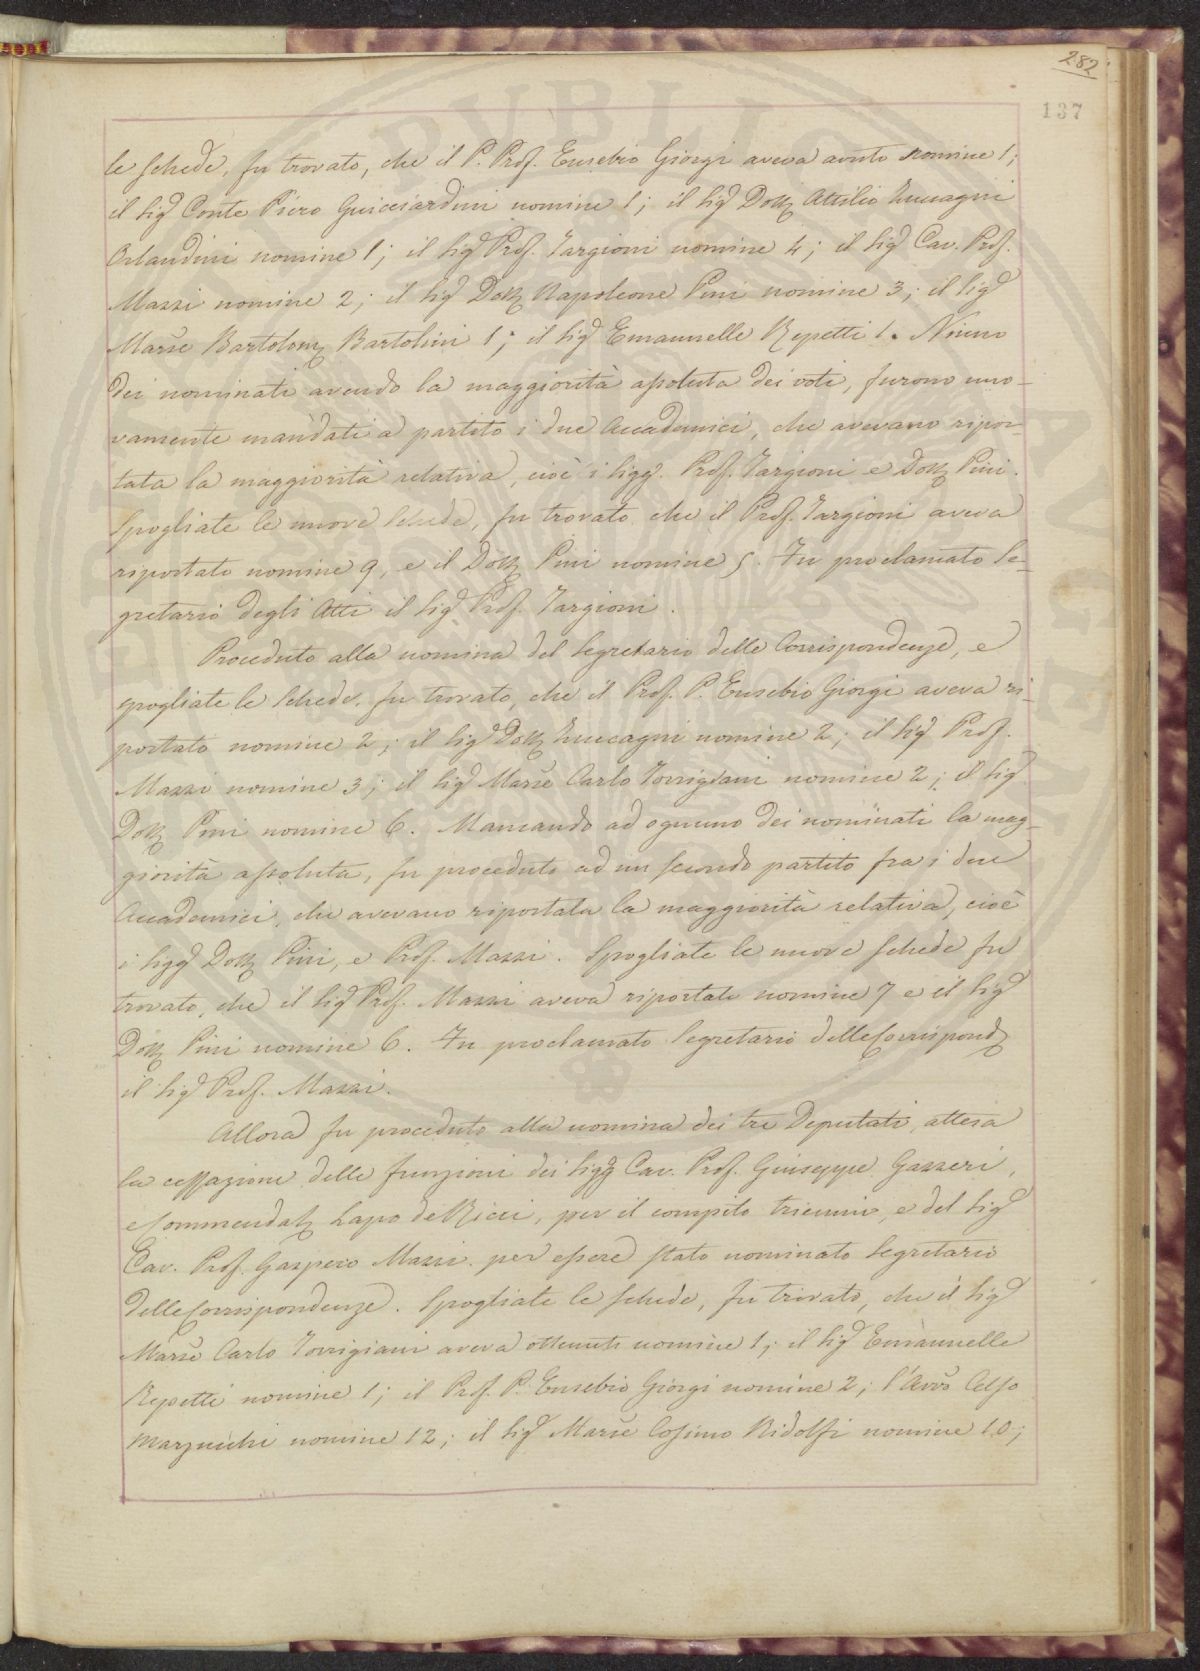 282
137
le schede, fu trovato, che il P. Prof. Eusebio Giorgi aveva avuto nomine 1;
il Sigr Conte Piero Guicciardini nomine 1; il Sigr Dott Attilio Zuccagni
Orlandini nomine 1; il Sigr Prof. Targioni nomine 4; il Sigr Cav. Prof.
Mazzi nomine 2; il Sigr Dott Napoleone Pini nomine 3; il Sigr
Marse Bartolom Bartolini 1; il Sigr Emanuelle Repetti 1. Niuno
dei nominati avendo la maggiorità assoluta dei voti, furono nuo-
vamente mandati a partito i due Accademici, che avevano ripor-
tata la maggiorità relativa, cioè i Sigg. Prof. Targioni e Dott Pini.
Spogliate le nuove schede, fu trovato che il Prof. Targioni aveva
riportato nomine 9, e il Dott Pini nomine 5. Fu proclamato Se-
gretario degli Atti il Sigr Prof. Targioni.
Proceduto alla nomina del Segretario delle Corrispondenze, e
spogliate le schede, fu trovato, che il Prof. P. Eusebio Giorgi aveva ri-
portato nomine 2; il Sigr Dott Zuccagni nomine 2; il Sigr Prof.
Mazzi nomine 3; il Sigr Marse Carlo Torrigiani nomine 2; il Sigr
Dott Pini nomine 6. Mancando ad ognuno dei nominati la mag-
giorità assoluta, fu proceduto ad un secondo partito fra i due
Accademici, che avevano riportata la maggiorità relativa, cioè
i Sigg Dott Pini, e Prof. Mazzi. Spogliate le nuove schede fu
trovato, che il Sigr Prof. Mazzi aveva riportate nomine 7 e il Sigr
Dott Pini nomine 6. Fu proclamato Segretario delle Corrispond
il Sigr Prof. Mazzi.
Allora fu proceduto alla nomina dei tre Deputati, attesa
la cessazione delle funzioni dei Sigg Cav. Prof. Giuseppe Gazzeri,
e Commendat Lapo de Ricci, per il compito triennio, e del Sigr
Cav. Prof. Gaspero Mazzi per essere stato nominato Segretario
delle Corrispondenze. Spogliate le schede, fu trovato, che il Sigr
Marse Carlo Torrigiani aveva ottenute nomine 1; il Sigr Emanuelle
Repetti nomine 1; il Prof. P. Eusebio Giorgi nomine 2; l'Avvo Celso
Marzucchi nomine 12; il Sigr Marse Cosimo Ridolfi nomine 10;